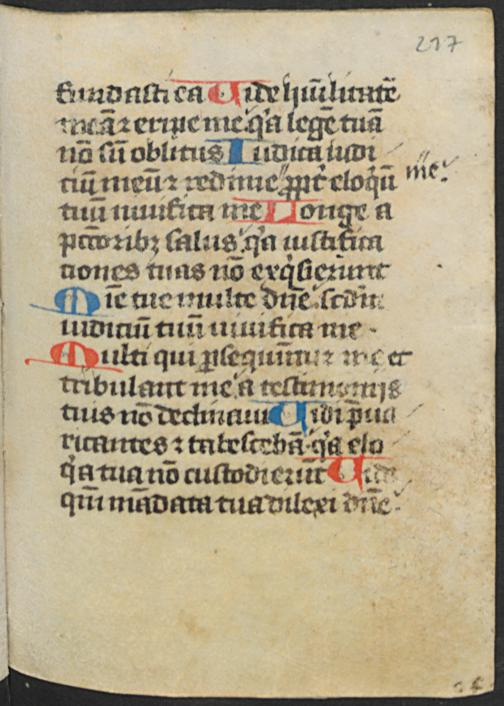 217
fundasti ea Uide hūilitatē
meā ⁊ eripe me q̓a legē tuā
nō sū oblitus Iudica iudi
tiū meū ⁊ redime ꝓpt̄ eloqū me
tuū uiuifica me Longe a
pctōribꝫ salus q̓a iustifica
tiones tuas nō exq̓sierunt
Mīe tue multe dn̄e scdm̄
iudiciū tuū uiuifica me
Multi qui ꝑsequūtur me et
tribulant me a testimonijs
tuis nō declinaui Uidi p̄ua
ricantes ⁊ tabescebā q̓a elo
q̓a tua nō custodierūt Uide
qm̄ mādata tua dilexi dn̄e